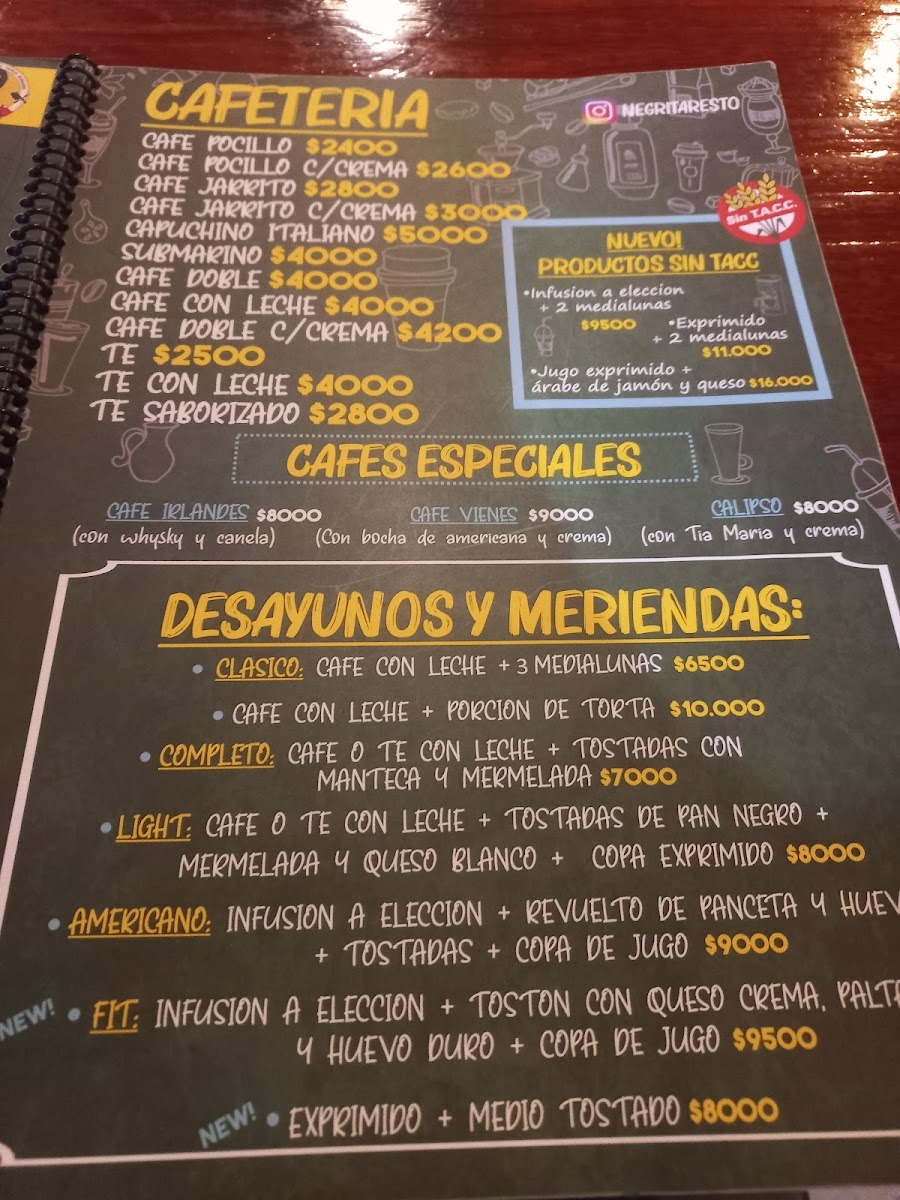 CAFETERIA
NEGRITARESTO
CAFE POCILLO $2400
CAFE POCILLO C/CREMA $2600
CAFE JARRITO $2800
CAFE JARRITO C/CREMA $3000
CAPUCHINO ITALIANO $5000
SUBMARINO $4000
CAFE DOBLE $4000
CAFE CON LECHE $4000
CAFE DOBLE C/CREMA $4200
TE $2500
TE CON LECHE $4000
TE SABORIZADO $2800
Sin T.A.C.C.
NUEVO!
PRODUCTOS SIN TACC
•Infusion a eleccion
+ 2 medialunas
$9500
•Exprimido
+ 2 medialunas
$11.000
•Jugo exprimido +
árabe de jamón y queso $16.000
CAFES ESPECIALES
CAFE IRLANDES $8000
(con whysky y canela)
CAFE VIENES $9000
(Con bocha de americana y crema)
CALIPSO $8000
(con Tia Maria y crema)
DESAYUNOS Y MERIENDAS:
• CLASICO: CAFE CON LECHE + 3 MEDIALUNAS $6500
• CAFE CON LECHE + PORCION DE TORTA $10.000
• COMPLETO: CAFE O TE CON LECHE + TOSTADAS CON
MANTECA Y MERMELADA $7000
• LIGHT: CAFE O TE CON LECHE + TOSTADAS DE PAN NEGRO +
MERMELADA Y QUESO BLANCO + COPA EXPRIMIDO $8000
• AMERICANO: INFUSION A ELECCION + REVUELTO DE PANCETA Y HUEV
+ TOSTADAS + COPA DE JUGO $9000
NEW! • FIT: INFUSION A ELECCION + TOSTON CON QUESO CREMA, PALTA
Y HUEVO DURO + COPA DE JUGO $9500
NEW! • EXPRIMIDO + MEDIO TOSTADO $8000